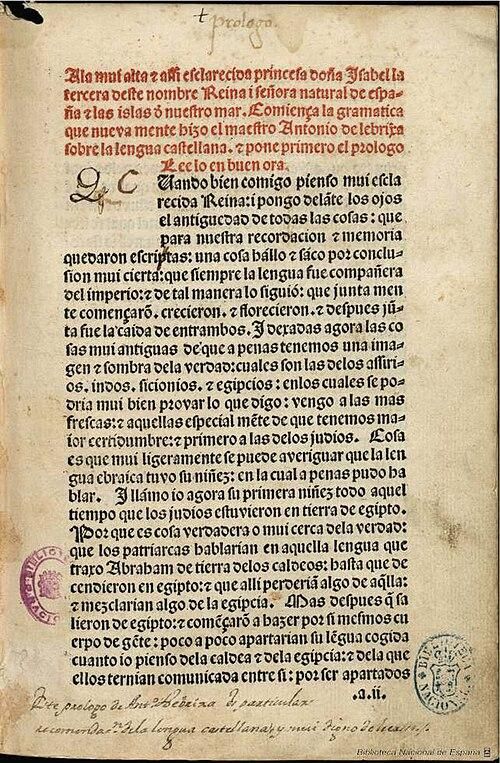 prologo.
A la mui alta ⁊ assi esclarecida princesa doña Isabel la
tercera deste nombre Reina i señora natural de espa-
ña ⁊ las islas õ nuestro mar. Comiença la gramatica
que nueva mente hizo el maestro Antonio de lebrixa
sobre la lengua castellana. ⁊ pone primero el prologo
Lee lo en buen ora.
C
Uando bien comigo pienso mui escla
recida Reina: i pongo delãte los ojos
el antiguedad de todas las cosas: que
para nuestra recordacion ⁊ memoria
quedaron escriptas: una cosa hállo ⁊ saco por conclu-
sion mui cierta: que siempre la lengua fue compañera
del imperio: ⁊ de tal manera lo siguió: que junta men
te començarõ. crecieron. ⁊ florecieron. ⁊ despues jũ-
ta fue la caida de entrambos. I dexadas agora las co
sas mui antiguas de que a penas tenemos una ima-
gen ⁊ sombra dela verdad: cuales son las delos assiri-
os. indos. sicionios. ⁊ egipcios: enlos cuales se po-
dria mui bien provar lo que digo: vengo a las mas
frescas: ⁊ aquellas especial mẽte de que tenemos ma-
ior certidumbre: ⁊ primero a las delos judios. Cosa
es que mui ligeramente se puede averiguar que la len
gua ebraica tuvo su niñez: en la cual a penas pudo ha
blar. I llámo io agora su primera niñez todo aquel
tiempo que los judios estuvieron en tierra de egipto.
Por que es cosa verdadera o mui cerca dela verdad:
que los patriarcas hablarian en aquella lengua que
traxo Abraham de tierra delos caldeos: hasta que de
cendieron en egipto: ⁊ que alli perderiã algo de aq̃lla:
⁊ mezclarian algo de la egipcia. Mas despues q̃ sa
lieron de egipto: ⁊ comẽçarõ a hazer por si mesmos cu
erpo de gẽte: poco a poco apartarian su lẽgua cogida
cuanto io pienso dela caldea ⁊ dela egipcia: ⁊ dela que
ellos ternian comunicada entre si: por ser apartados
.a.ii.
Este prologo de Antº Nebrixa es particular
de la lengua castellana, y mui digno de
BIBLIOTECA NACIONAL
Biblioteca Nacional de España